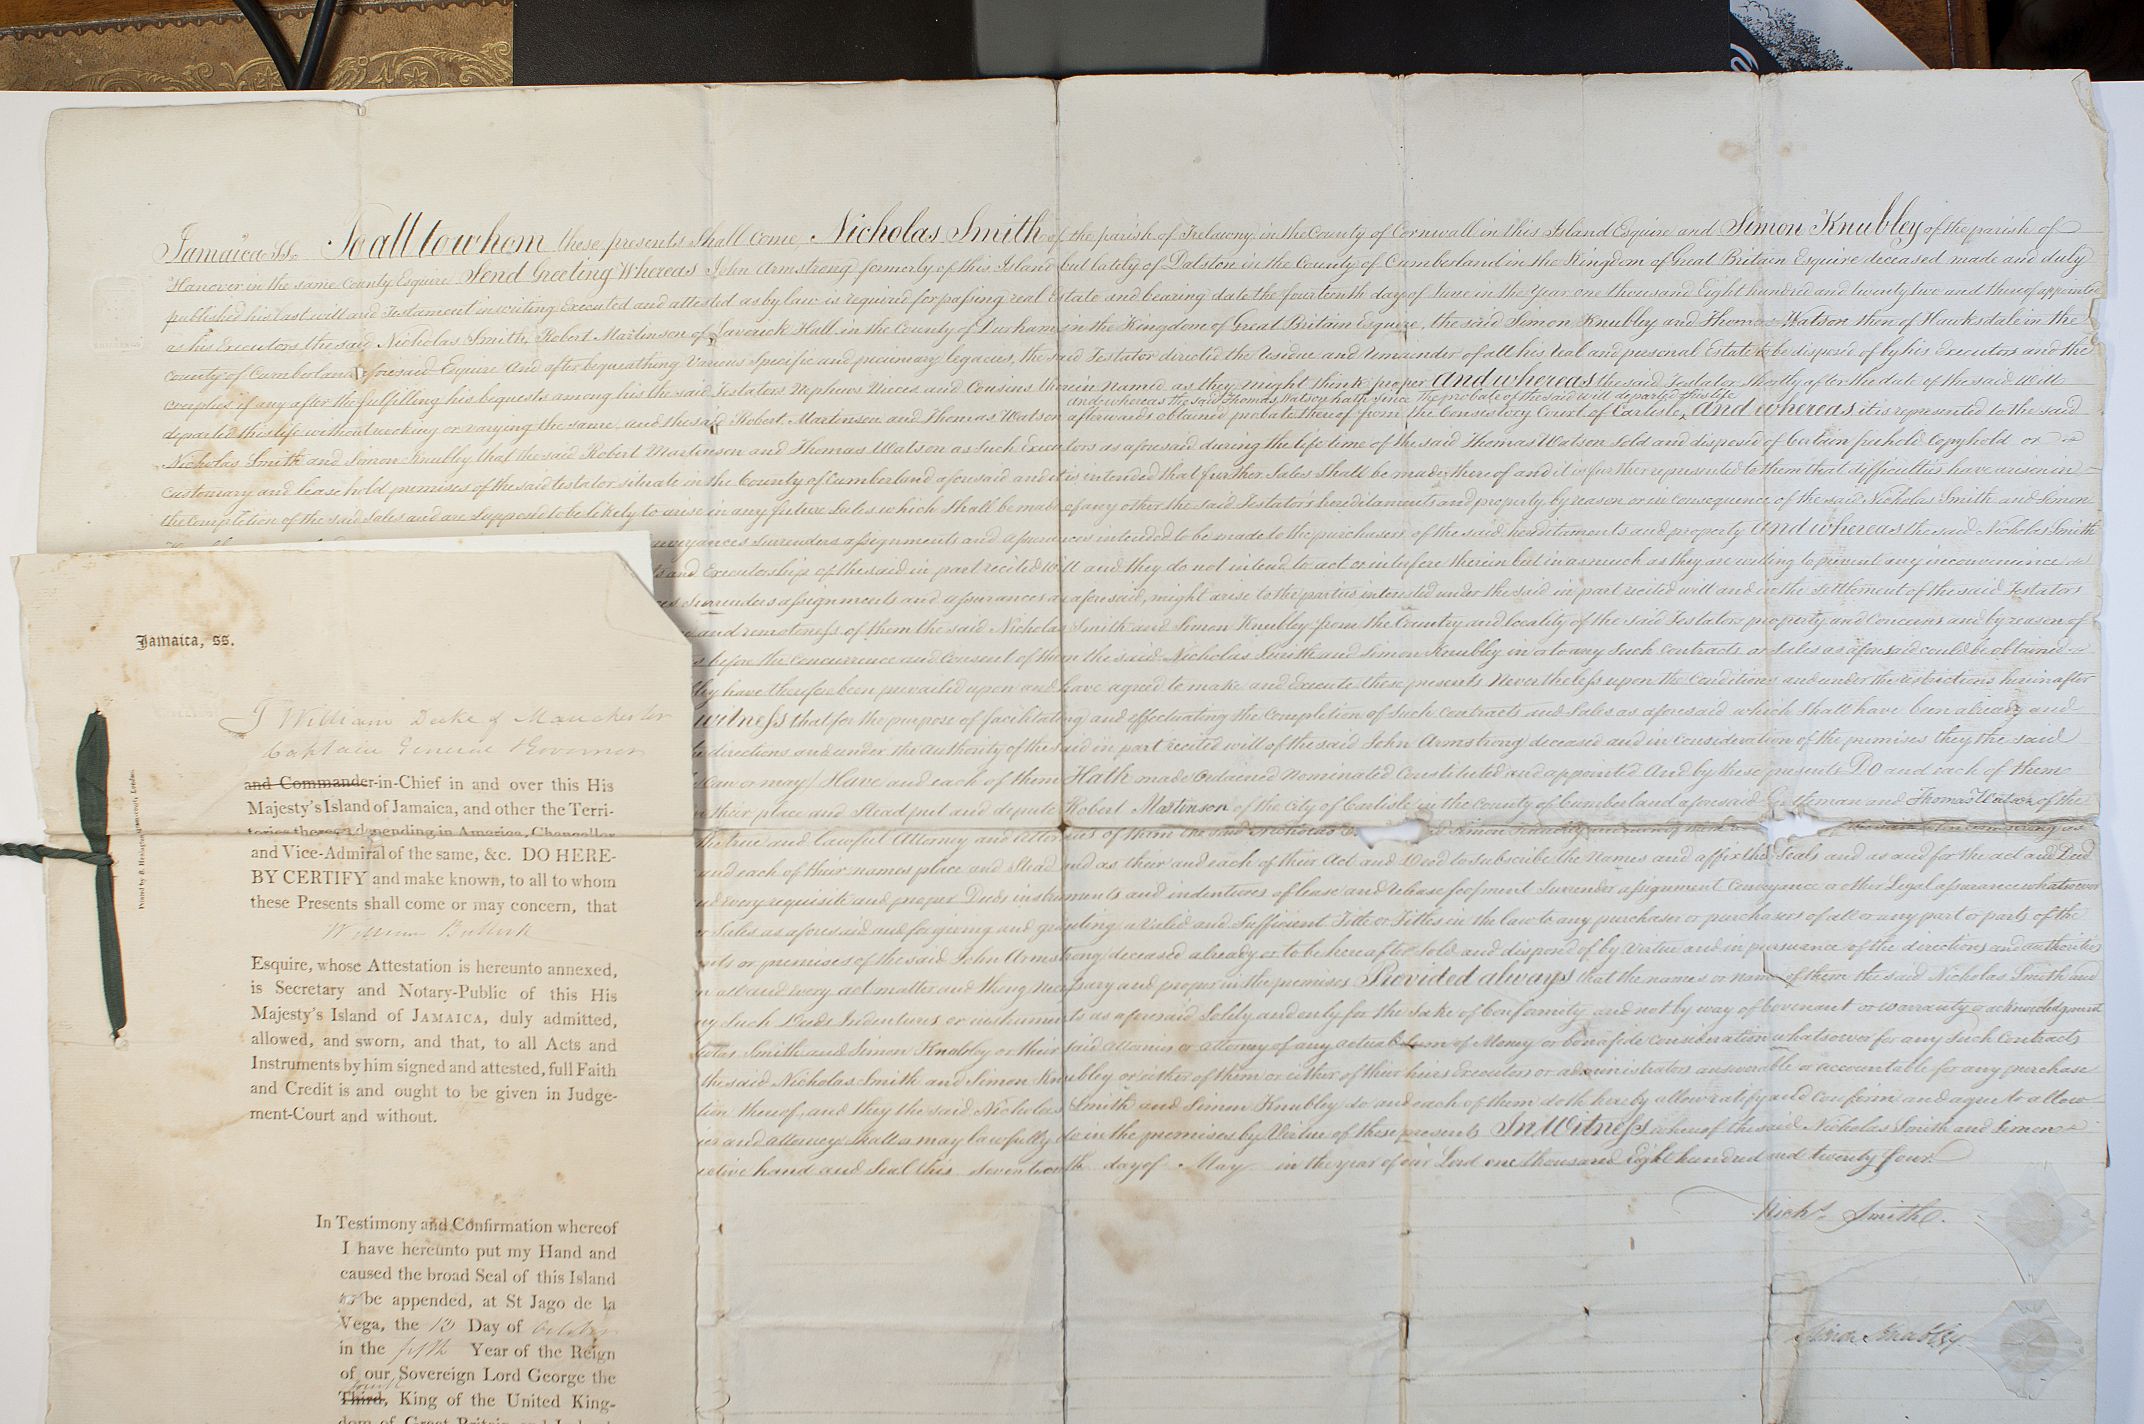 Jamaica Ss. To all to whom these presents Shall Come Nicholas Smith of the parish of Trelawny in the County of Cornwall in this Island Esquire and Simon Knubley of the parish of
Hanover in the same County Esquire Send Greeting Whereas John Armstrong formerly of this Island but lately of Dalston in the County of Cumberland in the Kingdom of Great Britain Esquire deceased made and duly
published his last will and Testament in writing Executed and attested as by law is required for passing real Estate and bearing date the fourteenth day of June in the Year one thousand Eight hundred and twenty two and thereof appointed
as his Executors the said Nicholas Smith, Robert Martinson of Hall in the County of Durham in the Kingdom of Great Britain Esquire, the said Simon Knubley and Thomas Watson then of Hawksdale in the
County of Cumberland aforesaid Esquire And after bequeathing Various Specific and pecuniary legacies, the said Testator directed the Residue and remainder of all his Real and personal Estate to be disposed of by his Executors and the
if any after the fulfilling his bequests among his the said Testators Nephews Nieces and Cousins therein named as they might think proper And whereas the said Testator Shortly after the date of the said Will
and whereas the said Thomas Watson hath since the probate of the said will departed this life
departed this life without revoking or varying the same, and the said Robert Martinson and Thomas Watson afterwards obtained probate thereof from the Consistory Court of Carlisle, And whereas it is represented to the said
Nicholas Smith and Simon Knubley that the said Robert Martinson and Thomas Watson as Such Executors as aforesaid during the life time of the said Thomas Watson Sold and disposed of Certain freehold Copyhold or
Customary and leasehold premises of the said testator situate in the County of Cumberland aforesaid and it is intended that further Sales Shall be made thereof and it is further represented to them that difficulties have arisen in
the Completion of the said Sales and are Supposed to be likely to arise in any future Sales which Shall be made of any other the said Testator's hereditaments and property by reason or in consequence of the said Nicholas Smith and Simon
Surrenders assignments and assurances intended to be made to the purchasers of the said hereditaments and property And whereas the said Nicholas Smith
and Executorship of the said in part recited Will and they do not intend to act or interfere therein but in as much as they are willing to prevent any inconvenience
Surrenders assignments and assurances as aforesaid, might arise to the parties interested under the said in part recited will and in the settlement of the said Testators
and remoteness of them the said Nicholas Smith and Simon Knubley from the Country and locality of the said Testators property and Concerns and by reason of
before the Concurrence and Consent of them the said Nicholas Smith and Simon Knubley in or to any Such contracts or Sales as aforesaid could be obtained
have therefore been prevailed upon and have agreed to make and Execute these presents Nevertheless upon the Conditions and under the restrictions hereinafter
witness that for the purpose of facilitating and effectuating the Completion of Such Contracts and Sales as aforesaid which Shall have been already and
directions and under the authority of the said in part recited will of the said John Armstrong deceased and in Consideration of the premises they the said
Law or may) Have and each of them Hath made Ordained Nominated Constituted and appointed And by these presents Do and each of them
in their place and Stead put and depute Robert Martinson of the City of Carlisle in the County of Cumberland aforesaid Gentleman and Thomas Watson of the
the true and lawful Attorney and Attornies of them the said Nicholas
and each of their names place and Stead and as their and each of their Act and Deed to Subscribe the Names and affix the Seals and as and for the act and Deed
every requisite and proper Deeds instruments and indentures of lease and release feofment Surrender assignment Conveyance or other Legal assurance whatsoever
Sales as aforesaid and for giving and granting a Valid and Sufficient Title or Titles in the law to any purchaser or purchasers of all or any part or parts of the
or premises of the said John Armstrong deceased already or to be hereafter Sold and disposed of by Virtue and in pursuance of the directions and authorities
all and every act matter and thing necessary and proper in the premises Provided always that the names or name of them the said Nicholas Smith and
Such Deeds Indentures or instruments as aforesaid Solely and only for the Sake of Conformity and not by way of Covenant or warranty or acknowledgment
Smith and Simon Knubley or their said attornies or attorney of any actual Sum of Money or bonafide Consideration whatsoever for any Such Contracts
the said Nicholas Smith and Simon Knubley or either of them or either of their heirs Executors or administrators answerable or accountable for any purchase
thereof, and they the said Nicholas Smith and Simon Knubley do and each of them doth hereby allow ratify and Confirm and agree to allow
and attorney Shall or may lawfully do in the premises by Virtue of these presents In Witness whereof the said Nicholas Smith and Simon
hand and Seal this Seventeenth day of May in the year of our Lord one thousand Eight hundred and twenty four.
Nichs. Smith.
Simon Knubley
Jamaica, ss.
I William Duke of Manchester
Captain General & Governor
and Commander-in-Chief in and over this His
Majesty's Island of Jamaica, and other the Terri-
tories thereon depending in America, Chancellor
and Vice-Admiral of the same, &c. DO HERE-
BY CERTIFY and make known, to all to whom
these Presents shall come or may concern, that
William Bullock
Esquire, whose Attestation is hereunto annexed,
is Secretary and Notary-Public of this His
Majesty's Island of JAMAICA, duly admitted,
allowed, and sworn, and that, to all Acts and
Instruments by him signed and attested, full Faith
and Credit is and ought to be given in Judge-
ment-Court and without.
In Testimony and Confirmation whereof
I have hereunto put my Hand and
caused the broad Seal of this Island
to be appended, at St Jago de la
Vega, the 13 Day of October
in the fifth Year of the Reign
of our Sovereign Lord George the
fourth
Third, King of the United King-
dom of Great Britain and